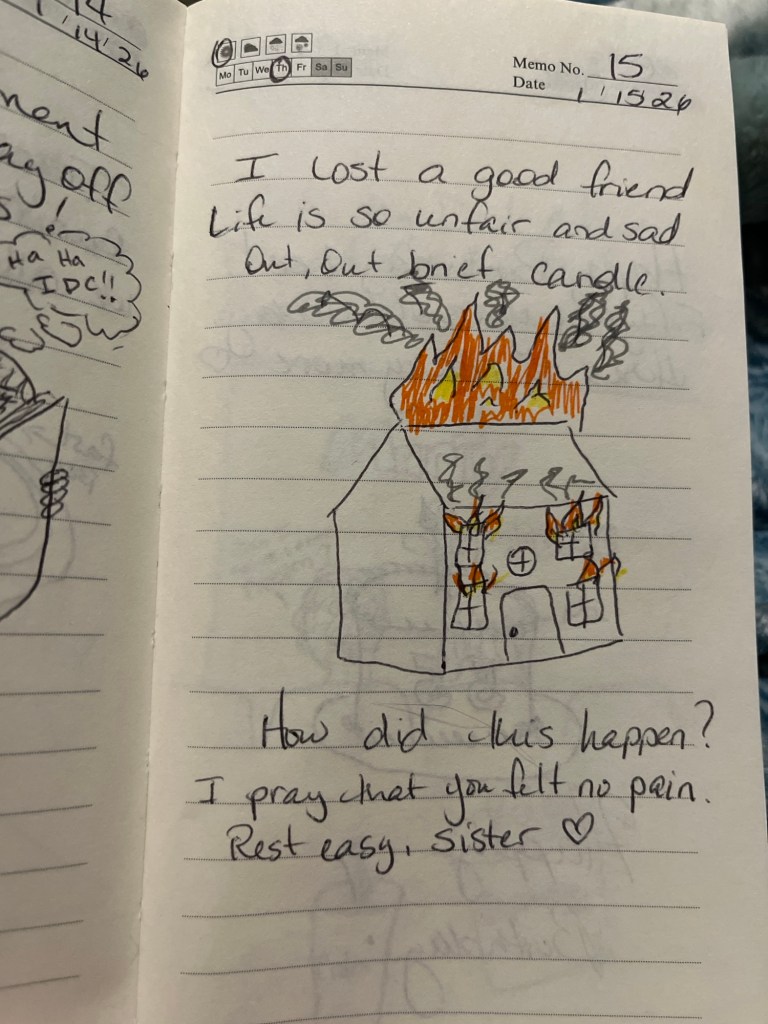 14
1/14/26
ment
ay off
s!
Ha Ha
IDC!!
Mo Tu We Th Fr Sa Su
Memo No. 15
Date 1/15 26
I lost a good friend
Life is so unfair and sad
Out, Out brief candle.
How did this happen?
I pray that you felt no pain.
Rest easy, sister ♡